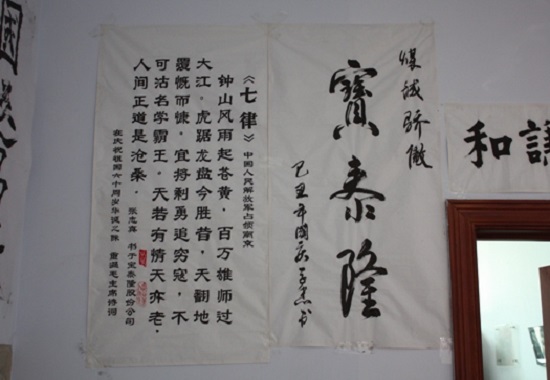 煤城骄傲
寶泰隆
己丑年国庆
《七律》中国人民解放军占领南京
钟山风雨起苍黄，百万雄师过
大江。虎踞龙盘今胜昔，天翻地
覆慨而慷。宜将剩勇追穷寇，不
可沽名学霸王。天若有情天亦老，
人间正道是沧桑。
书于宝泰隆股份公司
在庆祝祖国六十周岁华诞之际 重温毛主席诗词
和
國